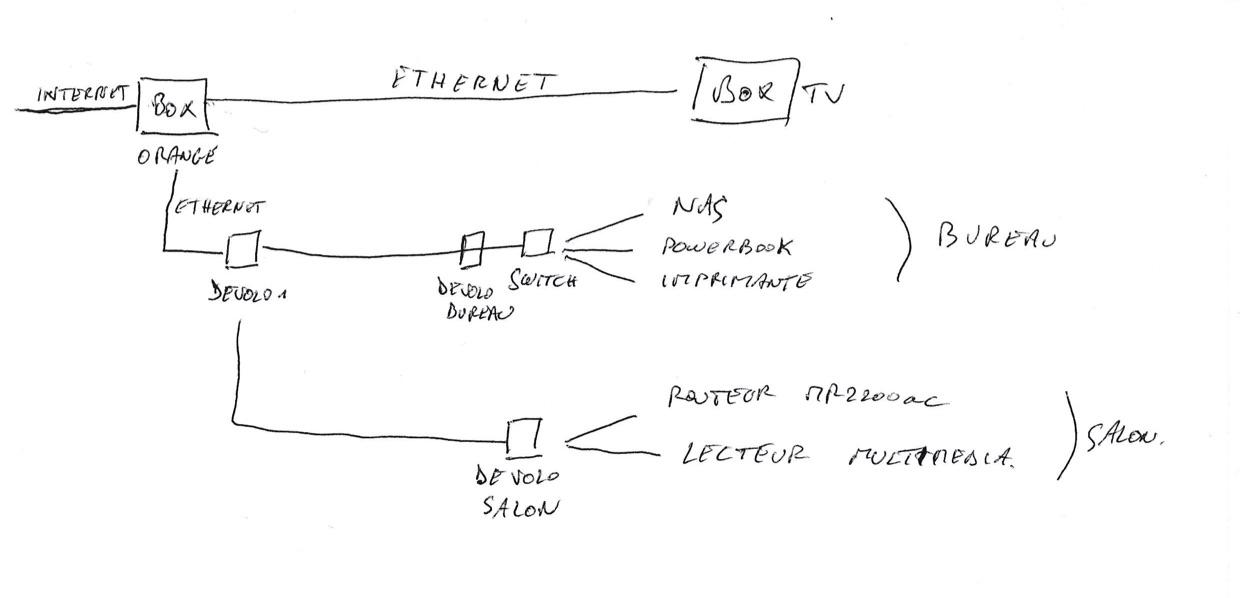 INTERNET
BOX
ETHERNET
BOX
TV
ORANGE
ETHERNET
NAS
POWERBOOK
IMPRIMANTE
BUREAU
DEVOLO 1
DEVOLO
BUREAU
SWITCH
ROUTEUR MR2200ac
LECTEUR MULTIMEDIA.
SALON.
DEVOLO
SALON